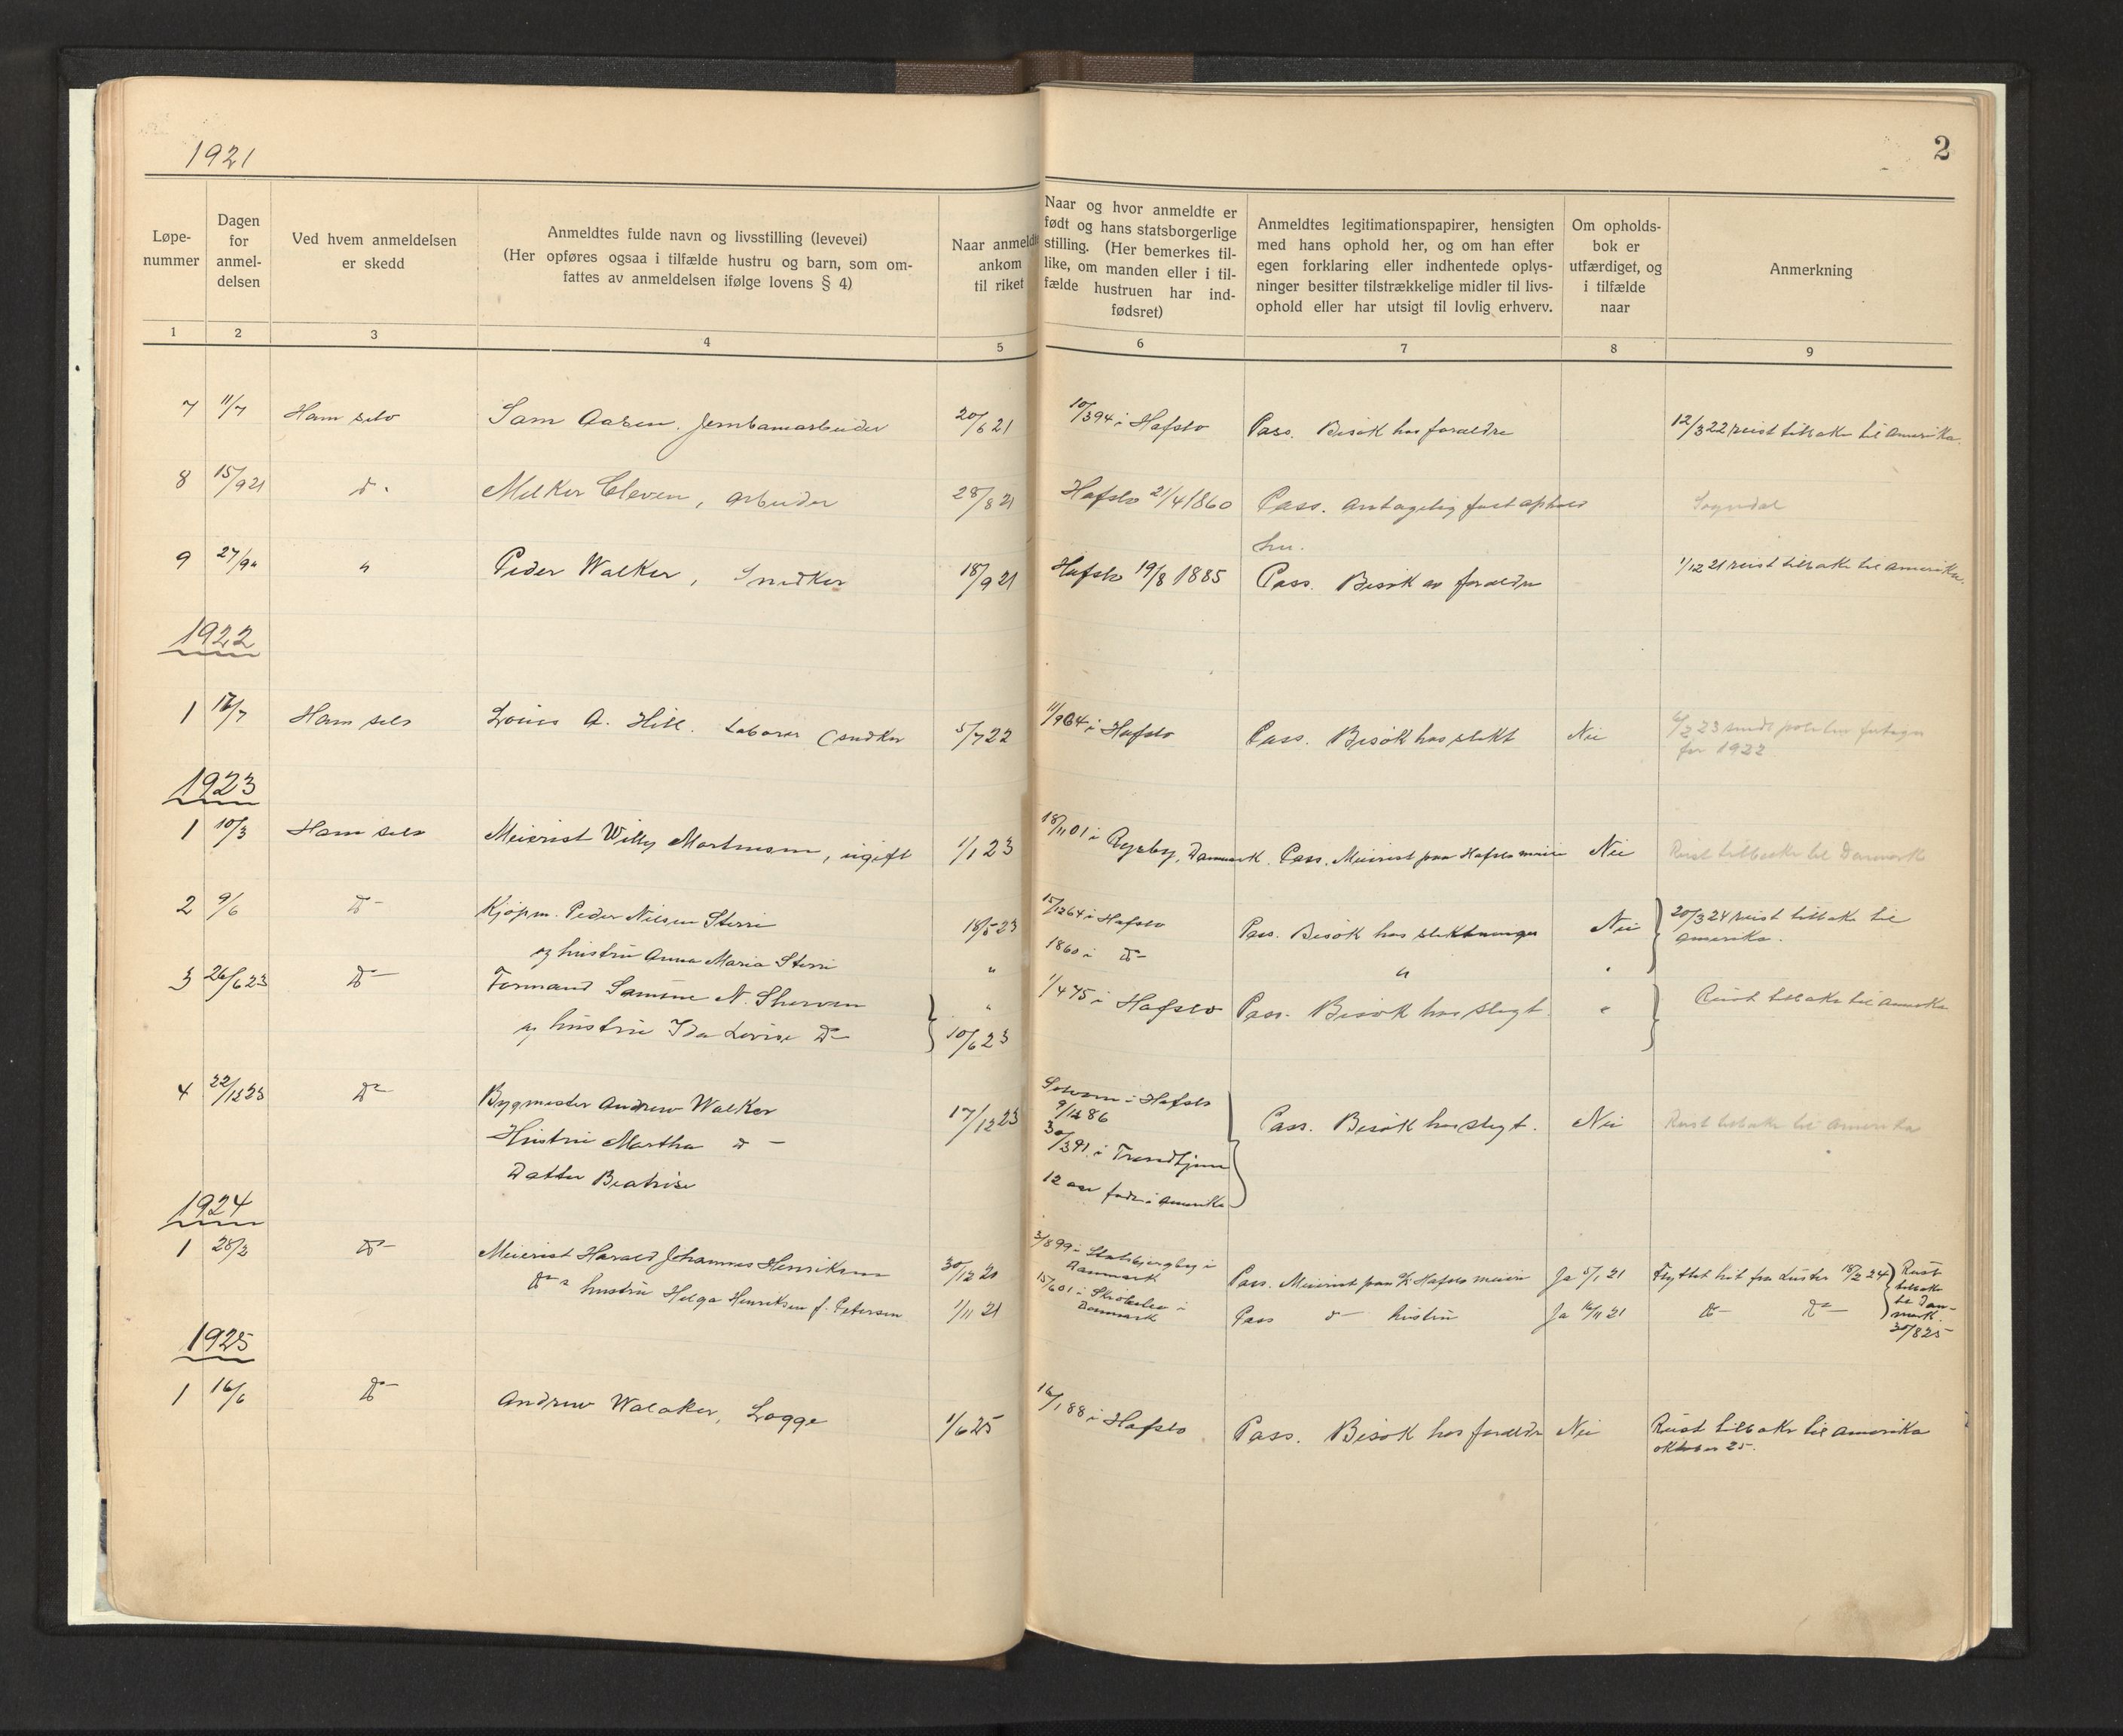 1921
2
Løpe-
nummer
Dagen
for
anmel-
delsen
Ved hvem anmeldelsen
er skedd
Anmeldtes fulde navn og livsstilling (levevei)
(Her opføres ogsaa i tilfælde hustru og barn, som om-
fattes av anmeldelsen ifølge lovens § 4)
Naar anmeldte
ankom
til riket
Naar og hvor anmeldte er
født og hans statsborgerlige
stilling. (Her bemerkes til-
like, om manden eller i til-
fælde hustruen har ind-
fødsret)
Anmeldtes legitimationspapirer, hensigten
med hans ophold her, og om han efter
egen forklaring eller indhentede oplys-
ninger besitter tilstrækkelige midler til livs-
ophold eller har utsigt til lovlig erhverv.
Om opholds-
bok er
utfærdiget, og
i tilfælde
naar
Anmerkning
1 2 3 4 5 6 7 8 9
7 11/7 Ham selv Sam Aasen. Jernbanearbeider 20/6 21 10/3 94 i Hafslo Pass. Besøk hos forældre 12/3 22 reist tilbake til Amerika.
8 15/9 21 do Melker Cleven, Arbeider 28/8 21 Hafslo 21/4 1860 Pass. Antagelig fast ophold Sogndal
her.
9 27/9 " " Peder Walker, Snedker 18/9 21 Hafslo 19/8 1885 Pass. Besøk av forældre 1/12 21 reist tilbake til Amerika.
1922
1 17/7 Ham selv Louis A. Hill. Laborer (snedker 5/7 22 11/9 64 i Hafslo Pass. Besøk hos slekt Nei 6/2 23 sendt
for 1922
1923
1 10/3 Ham selv Meierist Willy Mortensen, ugift 1/1 23 18/11 01 i Danmark. Pass. Meierist paa Hafslo meieri Nei Reist tilbake til Danmark
2 9/6 do Kjøpm. Peder Nilsen Sterri 18/5 23 15/12 64 i Hafslo Pass. Besøk hos slektninger Nei 20/3 24 reist tilbake til
og hustru Anna Maria Sterri " 1860 i do " " Amerika.
3 26/6 23 do Formand N. Shervan " 1/4 75 i Hafslo Pass. Besøk hos slegt. " Reist tilbake til Amerika
og hustru Ida Lovise do 10/6 23
4 22/12 23 do Bygmester Andrew Walker 17/12 23 i Hafslo
9/12 86 Pass. Besøk hos slegt. Nei Reist tilbake til Amerika
Hustru Martha do 30/3 91 i Trondhjem
Datter Beatrise 12 aar født i Amerika
1924
1 28/2 do Meierist Harald Johannes Henriksen 30/12 20 3/8 99 i
Danmark Pass. Meierist paa Hafslo meieri Ja 5/1 21 Flyttet hit fra Luster 18/2 24 Reist
tilbake
til Dan-
mark.
30/8 25
do s hustru Helga Henriksen f. Petersen 1/11 21 15/6 01 i
Danmark Pass do hustru Ja 16/11 21 do do
1925
1 16/6 do Andrew Walaker, Logge 1/6 25 16/1 88 i Hafslo Pass. Besøk hos forældre Nei Reist tilbake til Amerika
oktober 25.